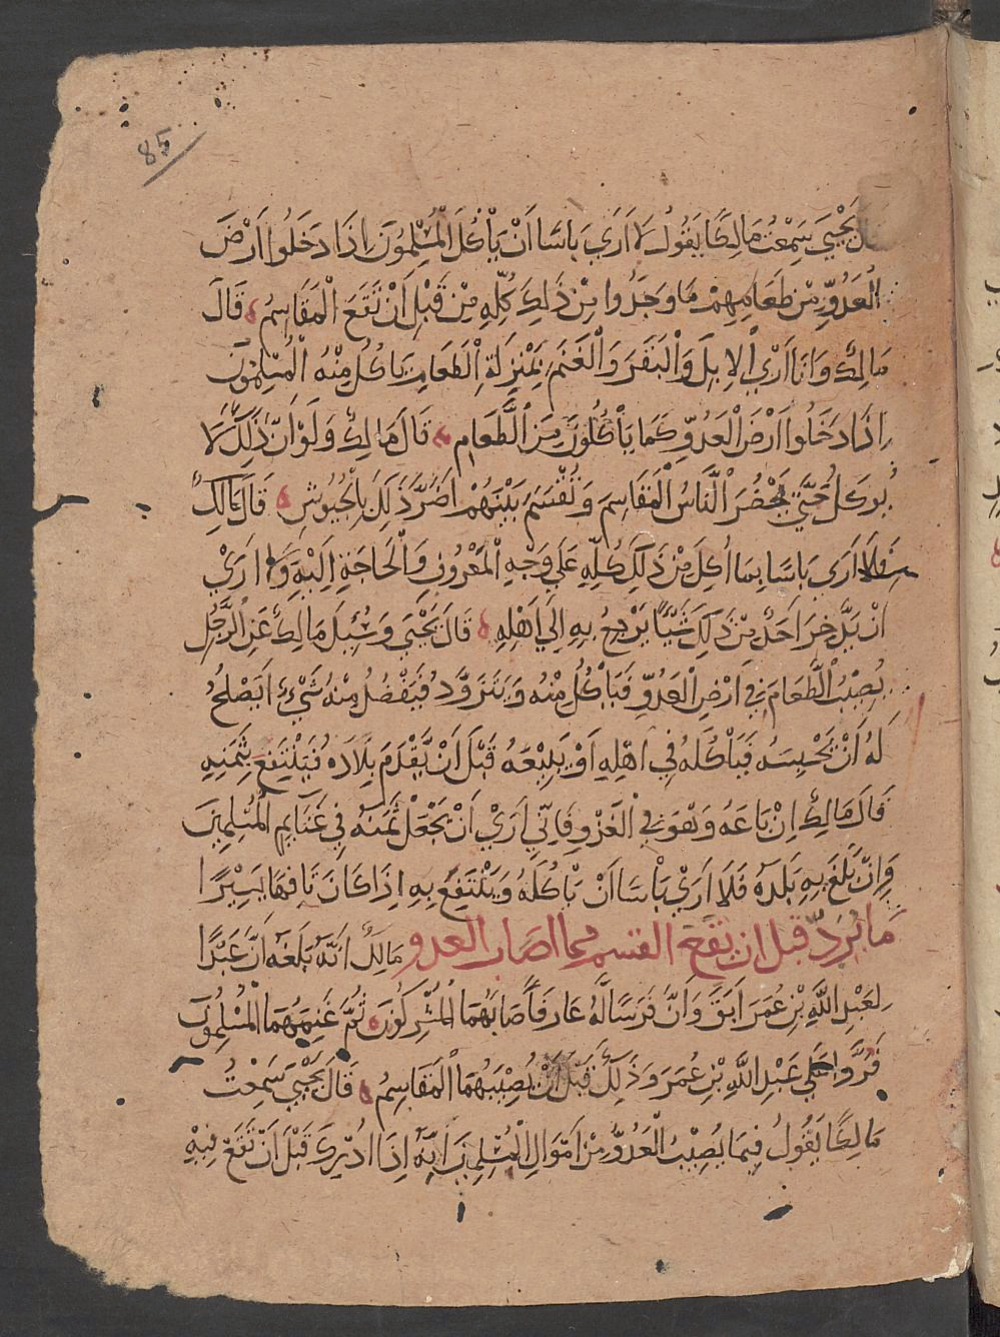 85
قَالَ يَحْيَى سَمِعْتُ مَالِكًا يَقُولُ لَا أَرَى بَاسًا أَنْ يَأْكُلَ الْمُسْلِمُونَ إِذَا دَخَلُوا أَرْضَ
الْعَدُوِّ مِنْ طَعَامِهِمْ مَا وَجَدُوا مِنْ ذَلِكَ كُلِّهِ مِنْ قَبْلِ أَنْ تَقَعَ الْمَقَاسِمُ ه قَالَ
مَالِكٌ وَانَا أَرَى الْإِبِلَ وَالْبَقَرَ وَالْغَنَمَ بِمَنْزِلَةِ الطَّعَامِ يَاكُلُ مِنْهُ الْمُسْلِمُونَ
إِذَا دَخَلُوا أَرْضَ الْعَدُوِّ كَمَا يَأْكُلُونَ مِنَ الطَّعَامِ ه قَالَ مَالِكٌ وَلَوْ أَنَّ ذَلِكَ لَا
يُوكَلُ حَتَّى يَحْضُرَ النَّاسُ الْمَقَاسِمَ وَتُقْسَمَ بَيْنَهُمْ أَضَرَّ ذَلِكَ بِالْجُيُوشِ ه قَالَ مَالِكٌ
فَلَا أَرَى بَاسًا بِمَا أُكِلَ مِنْ ذَلِكَ كُلِّهِ عَلَى وَجْهِ الْمَعْرُوفِ وَالْحَاجَةِ إِلَيْهِ وَلَا أَرَى
أَنْ يَدَّخِرَ أَحَدٌ مِنْ ذَلِكَ شَيْئًا يَرْجِعُ بِهِ إِلَى أَهْلِهِ ه قَالَ يَحْيَى وَسُئِلَ مَالِكٌ عَنِ الرَّجُلِ
يُصِيبُ الطَّعَامَ فِي أَرْضِ الْعَدُوِّ فَيَاكُلُ مِنْهُ وَيَتَزَوَّدُ فَيَفْضُلُ مِنْهُ شَيْءٌ أَيَصْلُحُ
لَهُ أَنْ يَحْبِسَهُ فَيَأْكُلَهُ فِي أَهْلِهِ أَوْ يَبِيعَهُ قَبْلَ أَنْ يَقْدَمَ بِلَادَهُ فَيَنْتَفِعَ بِثَمَنِهِ
قَالَ مَالِكٌ إِنْ بَاعَهُ وَهُوَ فِي الْغَزْوِ فَإِنِّي أَرَى أَنْ يَجْعَلَ ثَمَنَهُ فِي غَنَايِمِ الْمُسْلِمِينَ
وَإِنْ بَلَغَ بِهِ بَلَدَهُ فَلَا أَرَى بَأْسًا أَنْ يَأْكُلَهُ وَيَنْتَفِعَ بِهِ إِذَا كَانَ تَافِهًا يَسِيرًا
مَا يُرَدُّ قبل ان يقع القسم مما اصاب العدو مَالِكٌ أَنَّهُ بَلَغَهُ أَنَّ عَبْدًا
لِعَبْدِ اللَّهِ بْنِ عُمَرَ أَبَقَ وَأَنَّ فَرَسًا لَهُ عَارَ فَأَصَابَهُمَا الْمُشْرِكُونَ ه ثُمَّ غَنِمَهُمَا الْمُسْلِمُونَ
فَرُدَّا عَلَى عَبْدِ اللَّهِ بْنِ عُمَرَ وَذَلِكَ قَبْلَ أَنْ تُصِيبَهُمَا الْمَقَاسِمُ ه قَالَ يَحْيَى سَمِعْتُ
مَالِكًا يَقُولُ فِيمَا يُصِيبُ الْعَدُوُّ مِنْ أَمْوَالِ الْمُسْلِمِينَ أَنَّهُ إِذَا أُدْرِكَ قَبْلَ أَنْ تَقَعَ فِيهِ